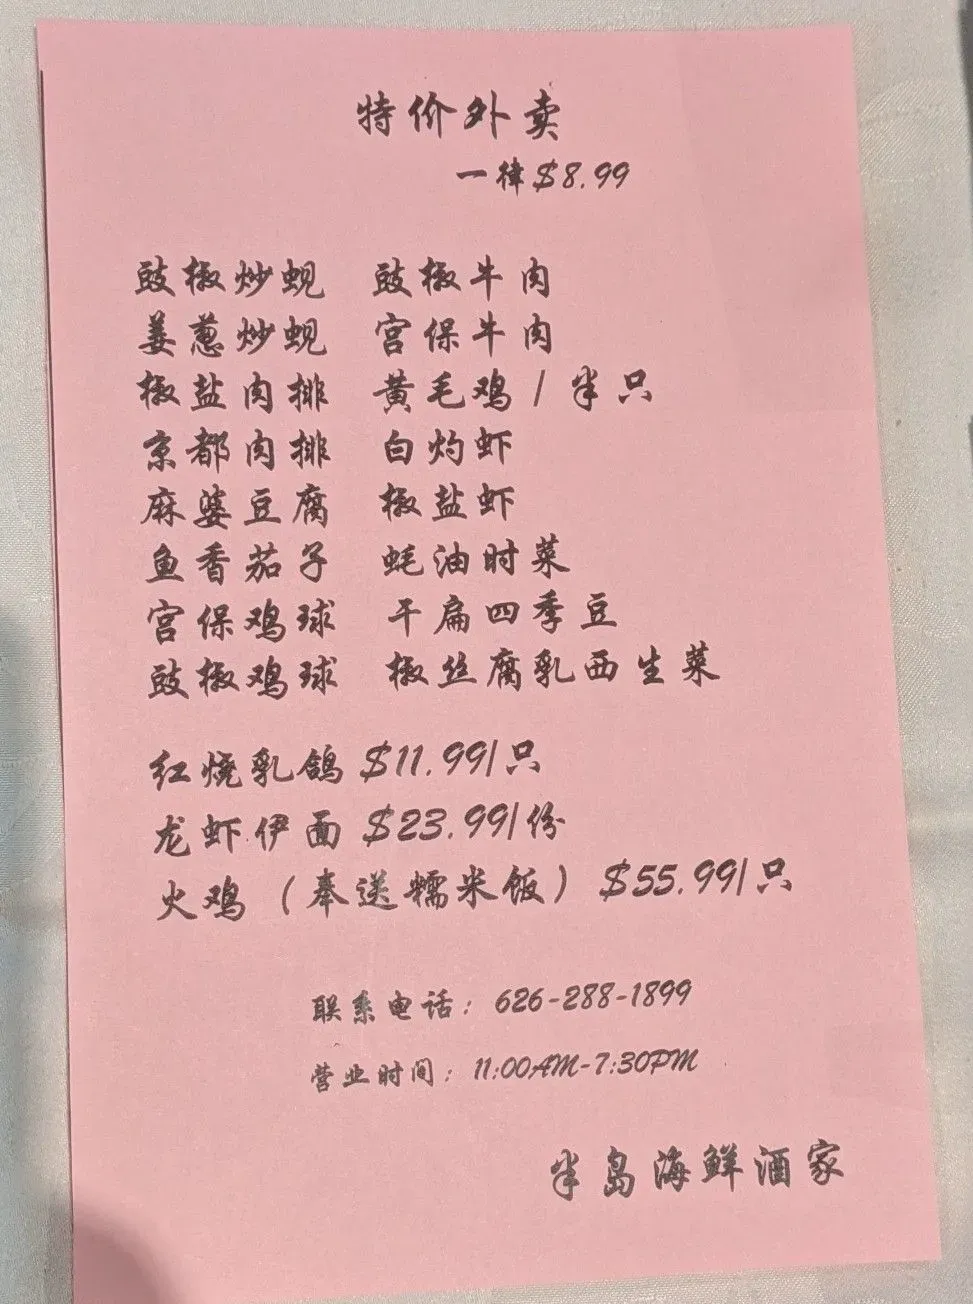 特价外卖
一律$8.99
豉椒炒蚬 豉椒牛肉
姜葱炒蚬 宫保牛肉
椒盐肉排 黄毛鸡/半只
京都肉排 白灼虾
麻婆豆腐 椒盐虾
鱼香茄子 蚝油时菜
宫保鸡球 干扁四季豆
豉椒鸡球 椒丝腐乳西生菜
红烧乳鸽 $11.99/只
龙虾伊面 $23.99/份
火鸡（奉送糯米饭） $55.99/只
联系电话：626-288-1899
营业时间：11:00AM-7:30PM
半岛海鲜酒家